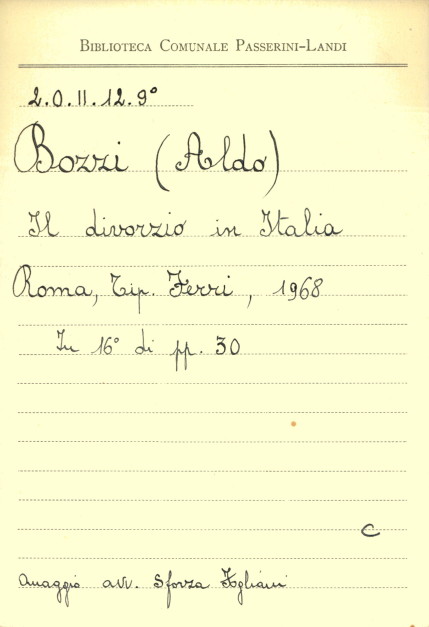 BIBLIOTECA COMUNALE PASSERINI-LANDI
2.0.II.12.9°
Bozzi (Aldo)
Il divorzio in Italia
Roma, Tip. Ferri, 1968
In 16° di pp. 30
C
omaggio avv. Sforza Fogliani